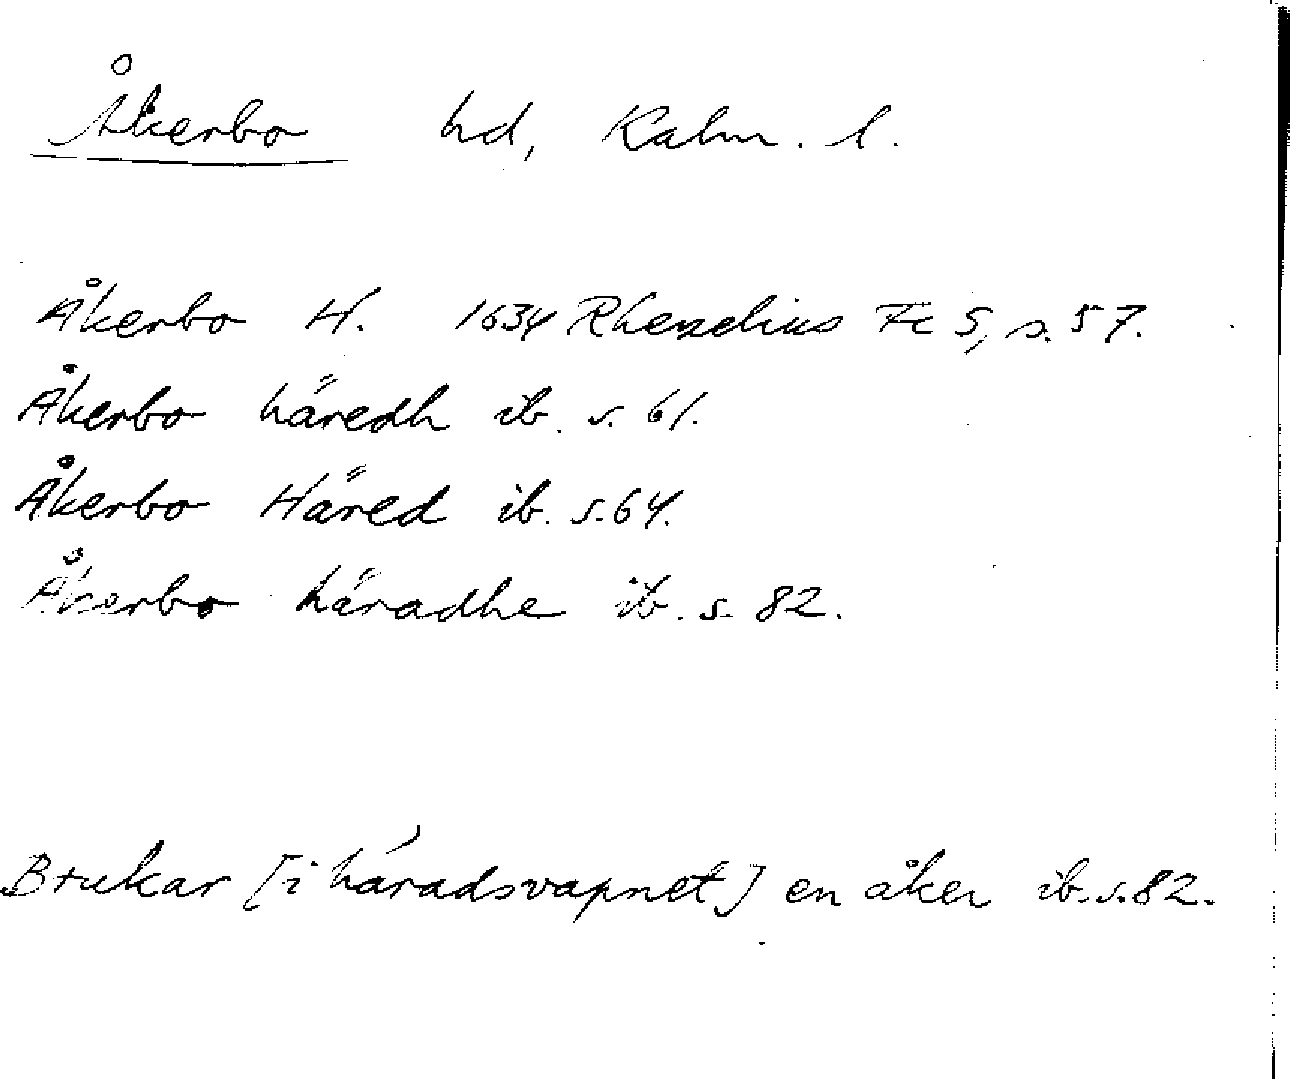 Åkerbo hd, Kalm. l.
Åkerbo H. 1634 Rhezelius Fc 5, s. 57.
Åkerbo häredh ib. s. 61.
Åkerbo Häred ib. s. 64.
Åkerbo häradhe ib. s. 82.
Brukar [i häradsvapnet] en åker ib. s. 82.